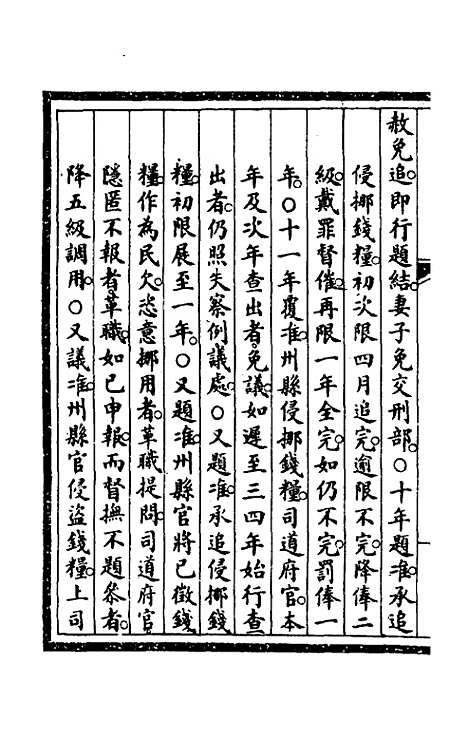 赦免追。即行題結。妻子免交刑部。○十年題准。承追
侵挪錢糧。初次限四月追完。逾限不完。降俸二
級。戴罪督催。再限一年全完。如仍不完。罰俸一
年。○十一年覆准。州縣侵挪錢糧。司道府官。本
年及次年查出者。免議。如遲至三四年始行查
出者。仍照失察例議處。○又題准。承追侵挪錢
糧。初限展至一年。○又題准。州縣官將已徵錢
糧。作為民欠。恣意挪用者。革職提問。司道府官
隱匿不報者。革職。如已申報。而督撫不題參者。
降五級調用。○又議准。州縣官侵盜錢糧。上司